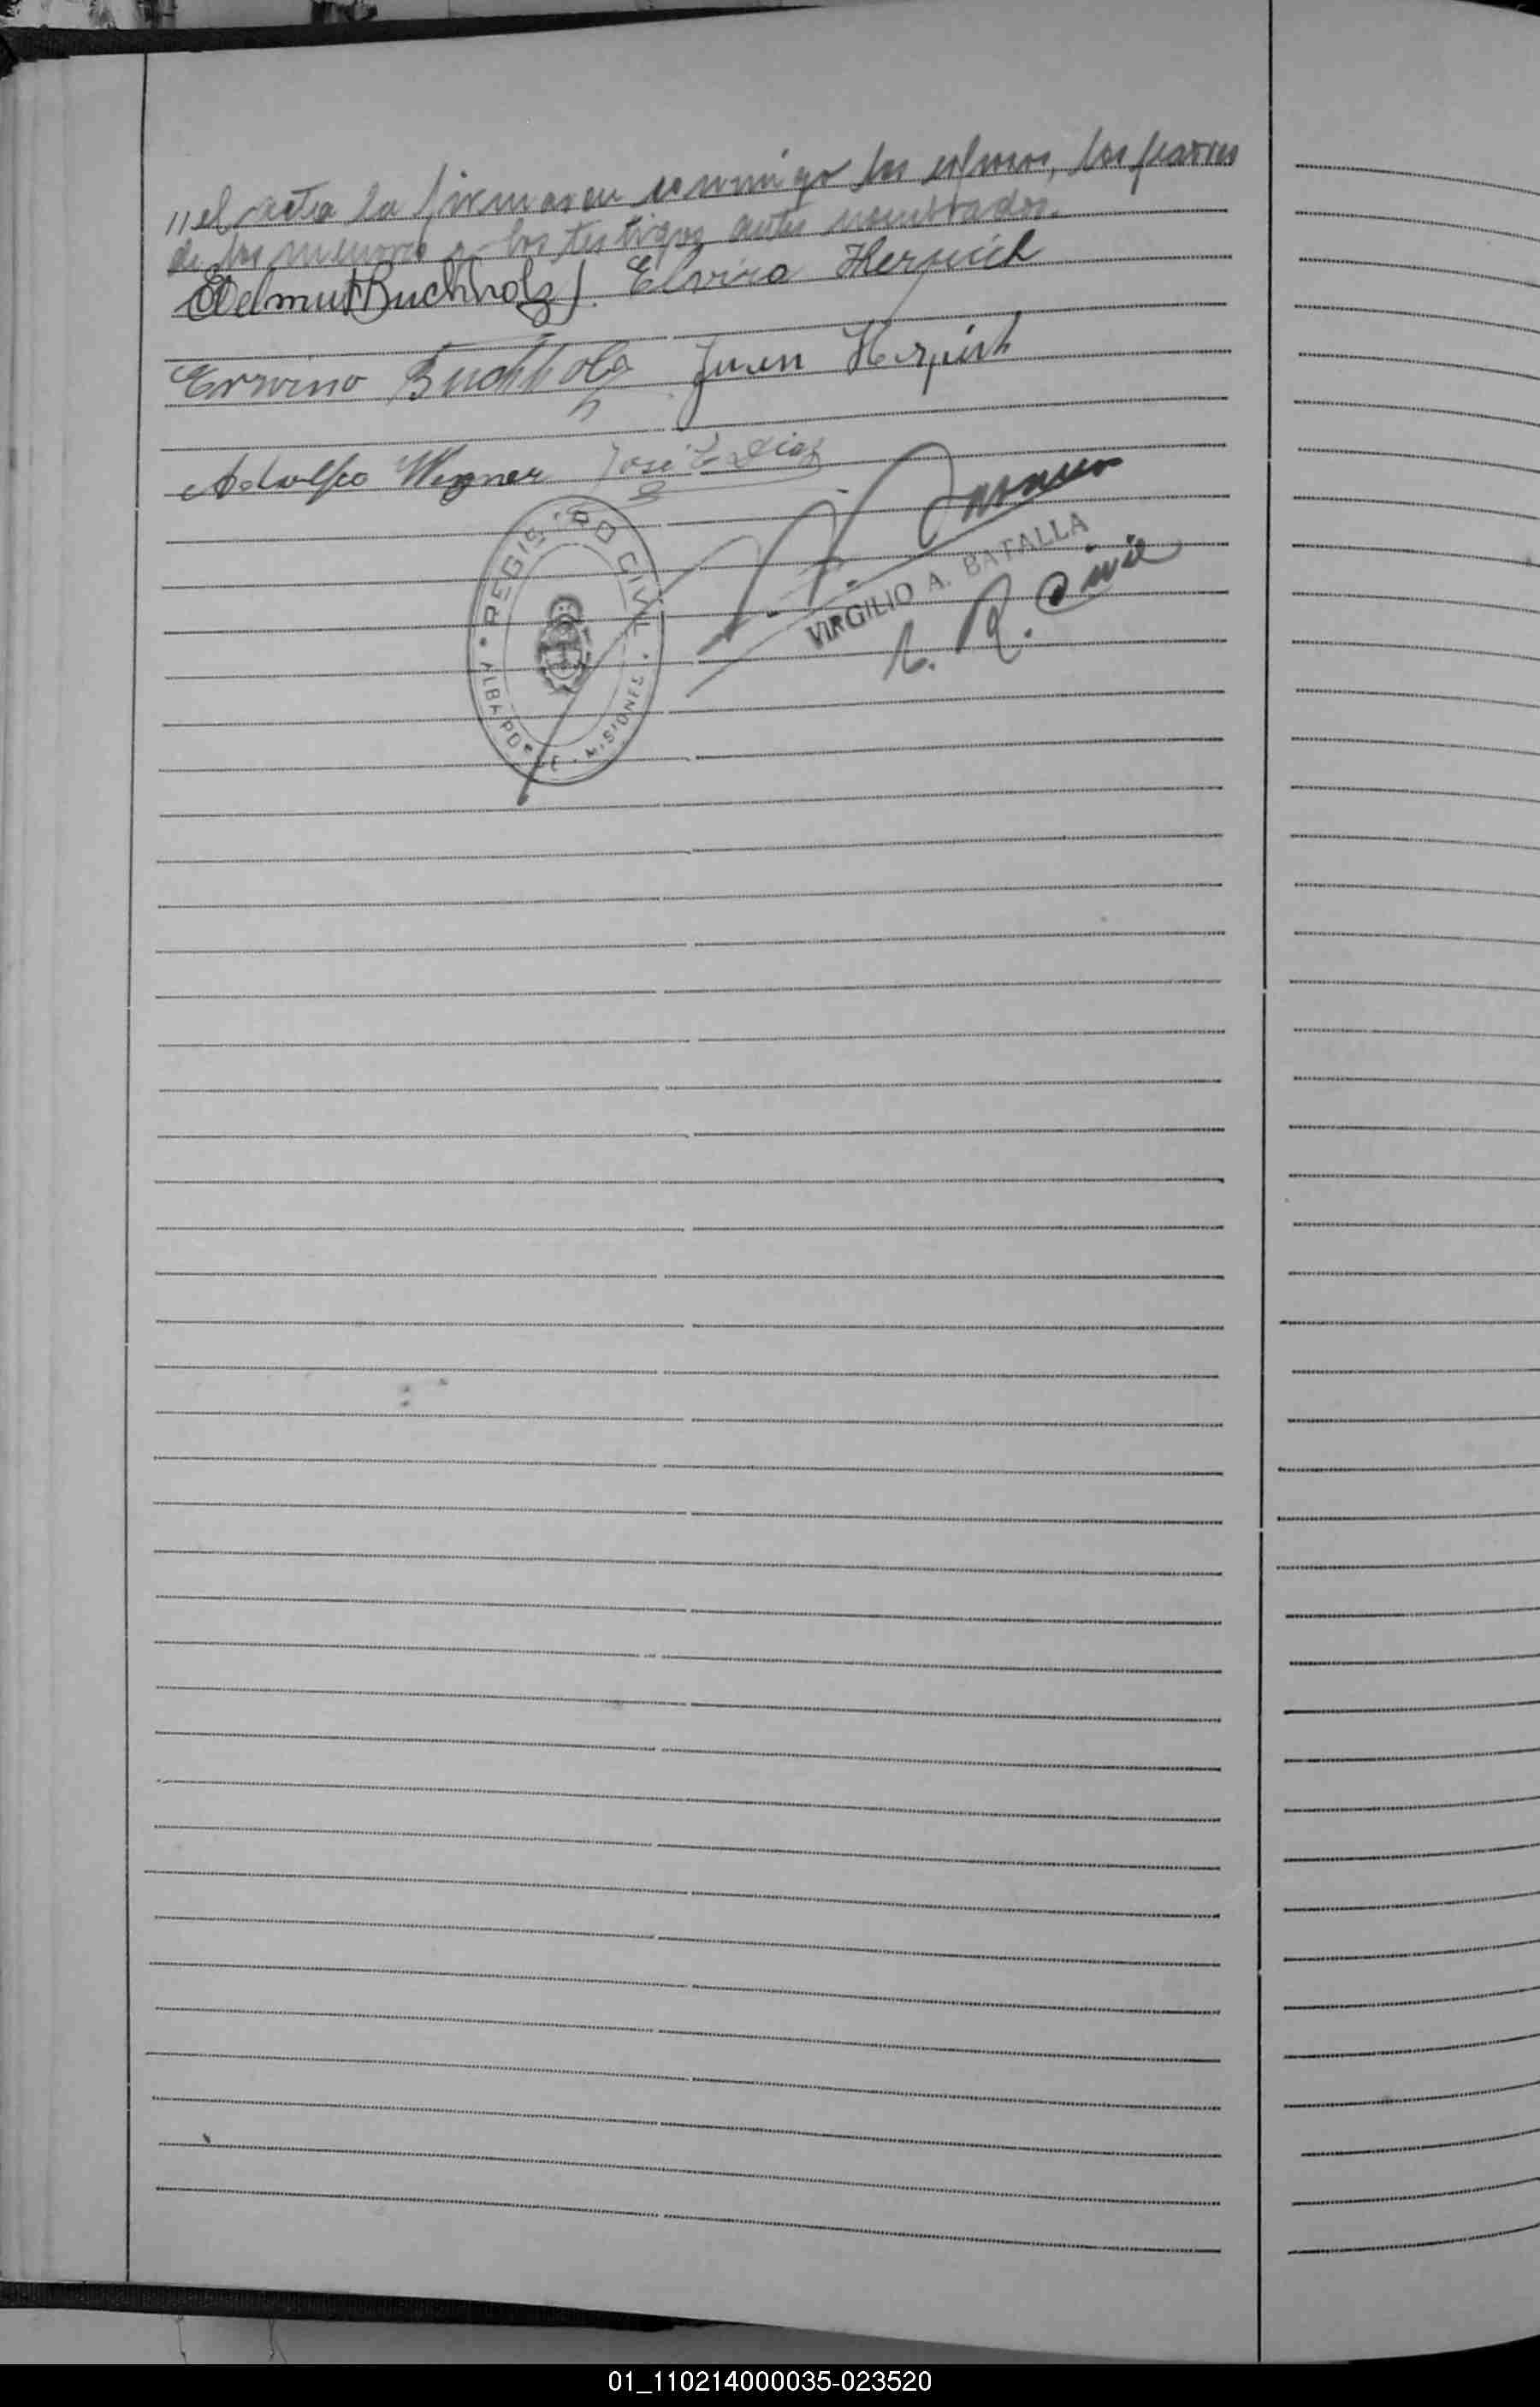 // el acta la firmaron conmigo los esposos, los padres
de los menores y los testigos antes nombrados.
Helmut Buchholz J. Elvira Herpich
Ervino Buchholz Juan Herpich
Adolfo Wegner José E. Diaz
REGISTRO CIVIL
ALBA POSSE · MISIONES
VIRGILIO A. BATALLA
R. Civil
01_110214000035-023520